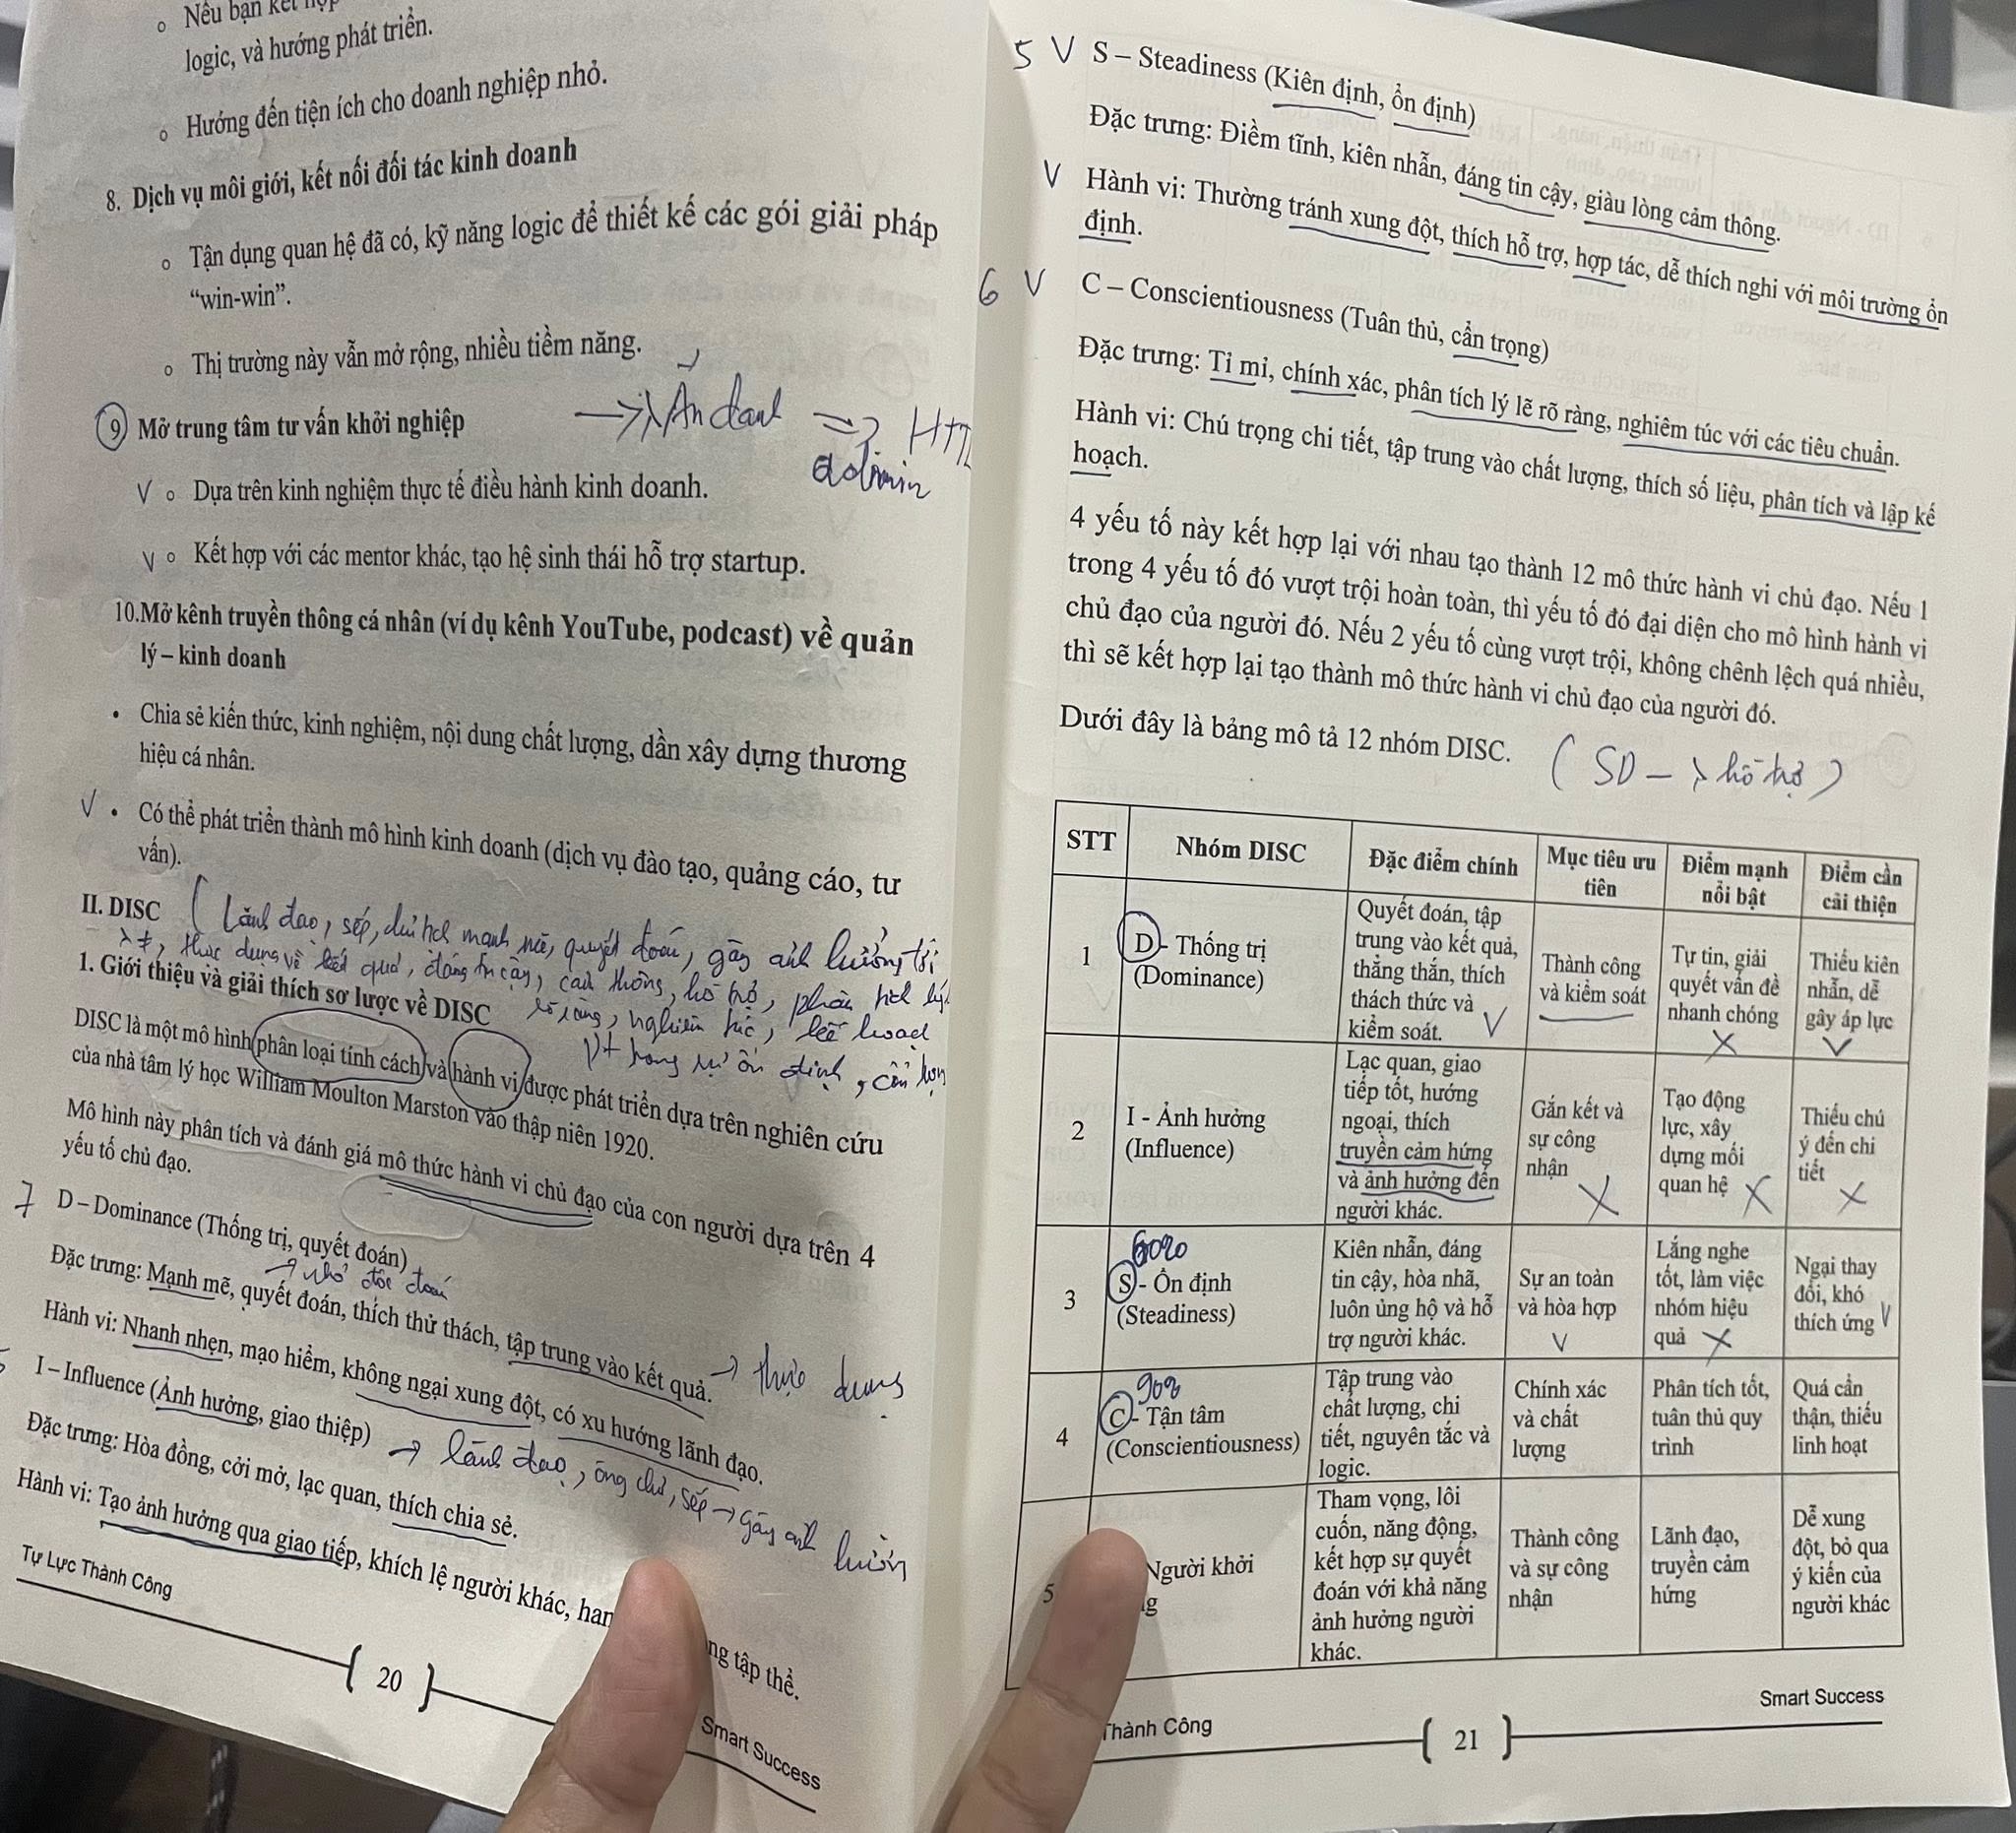 Nếu bạn kết hợp
logic, và hướng phát triển.
Hướng đến tiện ích cho doanh nghiệp nhỏ.
8. Dịch vụ môi giới, kết nối đối tác kinh doanh
Tận dụng quan hệ đã có, kỹ năng logic để thiết kế các gói giải pháp
“win-win”.
Thị trường này vẫn mở rộng, nhiều tiềm năng.
9 Mở trung tâm tư vấn khởi nghiệp
admin
V Dựa trên kinh nghiệm thực tế điều hành kinh doanh.
V Kết hợp với các mentor khác, tạo hệ sinh thái hỗ trợ startup.
10.Mở kênh truyền thông cá nhân (ví dụ kênh YouTube, podcast) về quản
lý – kinh doanh
• Chia sẻ kiến thức, kinh nghiệm, nội dung chất lượng, dần xây dựng thương
hiệu cá nhân.
V • Có thể phát triển thành mô hình kinh doanh (dịch vụ đào tạo, quảng cáo, tư
vấn).
II. DISC
( Lãnh đạo, sếp, mạnh mẽ, quyết đoán, gây ảnh hưởng tới
thực dụng về kết quả, đáng tin cậy, cảm thông, hỗ trợ, phân tích lý
1. Giới thiệu và giải thích sơ lược về DISC
rõ ràng, nghiêm túc, kế hoạch
ổn định, cẩn trọng
DISC là một mô hình phân loại tính cách và hành vi được phát triển dựa trên nghiên cứu
của nhà tâm lý học William Moulton Marston vào thập niên 1920.
Mô hình này phân tích và đánh giá mô thức hành vi chủ đạo của con người dựa trên 4
yếu tố chủ đạo.
7 D – Dominance (Thống trị, quyết đoán)
→ độc đoán
Đặc trưng: Mạnh mẽ, quyết đoán, thích thử thách, tập trung vào kết quả. → thực dụng
Hành vi: Nhanh nhẹn, mạo hiểm, không ngại xung đột, có xu hướng lãnh đạo.
I – Influence (Ảnh hưởng, giao thiệp) → lãnh đạo, ông chủ, sếp → gây ảnh hưởng
Đặc trưng: Hòa đồng, cởi mở, lạc quan, thích chia sẻ.
Hành vi: Tạo ảnh hưởng qua giao tiếp, khích lệ người khác, ng tập thể.
Tự Lực Thành Công
20
Smart Success
5 V S – Steadiness (Kiên định, ổn định)
Đặc trưng: Điềm tĩnh, kiên nhẫn, đáng tin cậy, giàu lòng cảm thông.
V Hành vi: Thường tránh xung đột, thích hỗ trợ, hợp tác, dễ thích nghi với môi trường ổn
định.
6 V C – Conscientiousness (Tuân thủ, cẩn trọng)
Đặc trưng: Tỉ mỉ, chính xác, phân tích lý lẽ rõ ràng, nghiêm túc với các tiêu chuẩn.
Hành vi: Chú trọng chi tiết, tập trung vào chất lượng, thích số liệu, phân tích và lập kế
hoạch.
4 yếu tố này kết hợp lại với nhau tạo thành 12 mô thức hành vi chủ đạo. Nếu 1
trong 4 yếu tố đó vượt trội hoàn toàn, thì yếu tố đó đại diện cho mô hình hành vi
chủ đạo của người đó. Nếu 2 yếu tố cùng vượt trội, không chênh lệch quá nhiều,
thì sẽ kết hợp lại tạo thành mô thức hành vi chủ đạo của người đó.
Dưới đây là bảng mô tả 12 nhóm DISC. (SD → hỗ trợ)
STT
Nhóm DISC
Đặc điểm chính
Mục tiêu ưu
tiên
Điểm mạnh
nổi bật
Điểm cần
cải thiện
1
D - Thống trị
(Dominance)
Quyết đoán, tập
trung vào kết quả,
thẳng thắn, thích
thách thức và
kiểm soát. V
Thành công
và kiểm soát
Tự tin, giải
quyết vấn đề
nhanh chóng
X
Thiếu kiên
nhẫn, dễ
gây áp lực
V
2
I - Ảnh hưởng
(Influence)
Lạc quan, giao
tiếp tốt, hướng
ngoại, thích
truyền cảm hứng
và ảnh hưởng đến
người khác.
Gắn kết và
sự công
nhận
X
Tạo động
lực, xây
dựng mối
quan hệ X
Thiếu chú
ý đến chi
tiết X
3
60%
S - Ổn định
(Steadiness)
Kiên nhẫn, đáng
tin cậy, hòa nhã,
luôn ủng hộ và hỗ
trợ người khác.
Sự an toàn
và hòa hợp
V
Lắng nghe
tốt, làm việc
nhóm hiệu
quả X
Ngại thay
đổi, khó
thích ứng V
4
90%
C - Tận tâm
(Conscientiousness)
Tập trung vào
chất lượng, chi
tiết, nguyên tắc và
logic.
Chính xác
và chất
lượng
Phân tích tốt,
tuân thủ quy
trình
Quá cẩn
thận, thiếu
linh hoạt
5
Người khởi
Tham vọng, lôi
cuốn, năng động,
kết hợp sự quyết
đoán với khả năng
ảnh hưởng người
khác.
Thành công
và sự công
nhận
Lãnh đạo,
truyền cảm
hứng
Dễ xung
đột, bỏ qua
ý kiến của
người khác
Thành Công
21
Smart Success